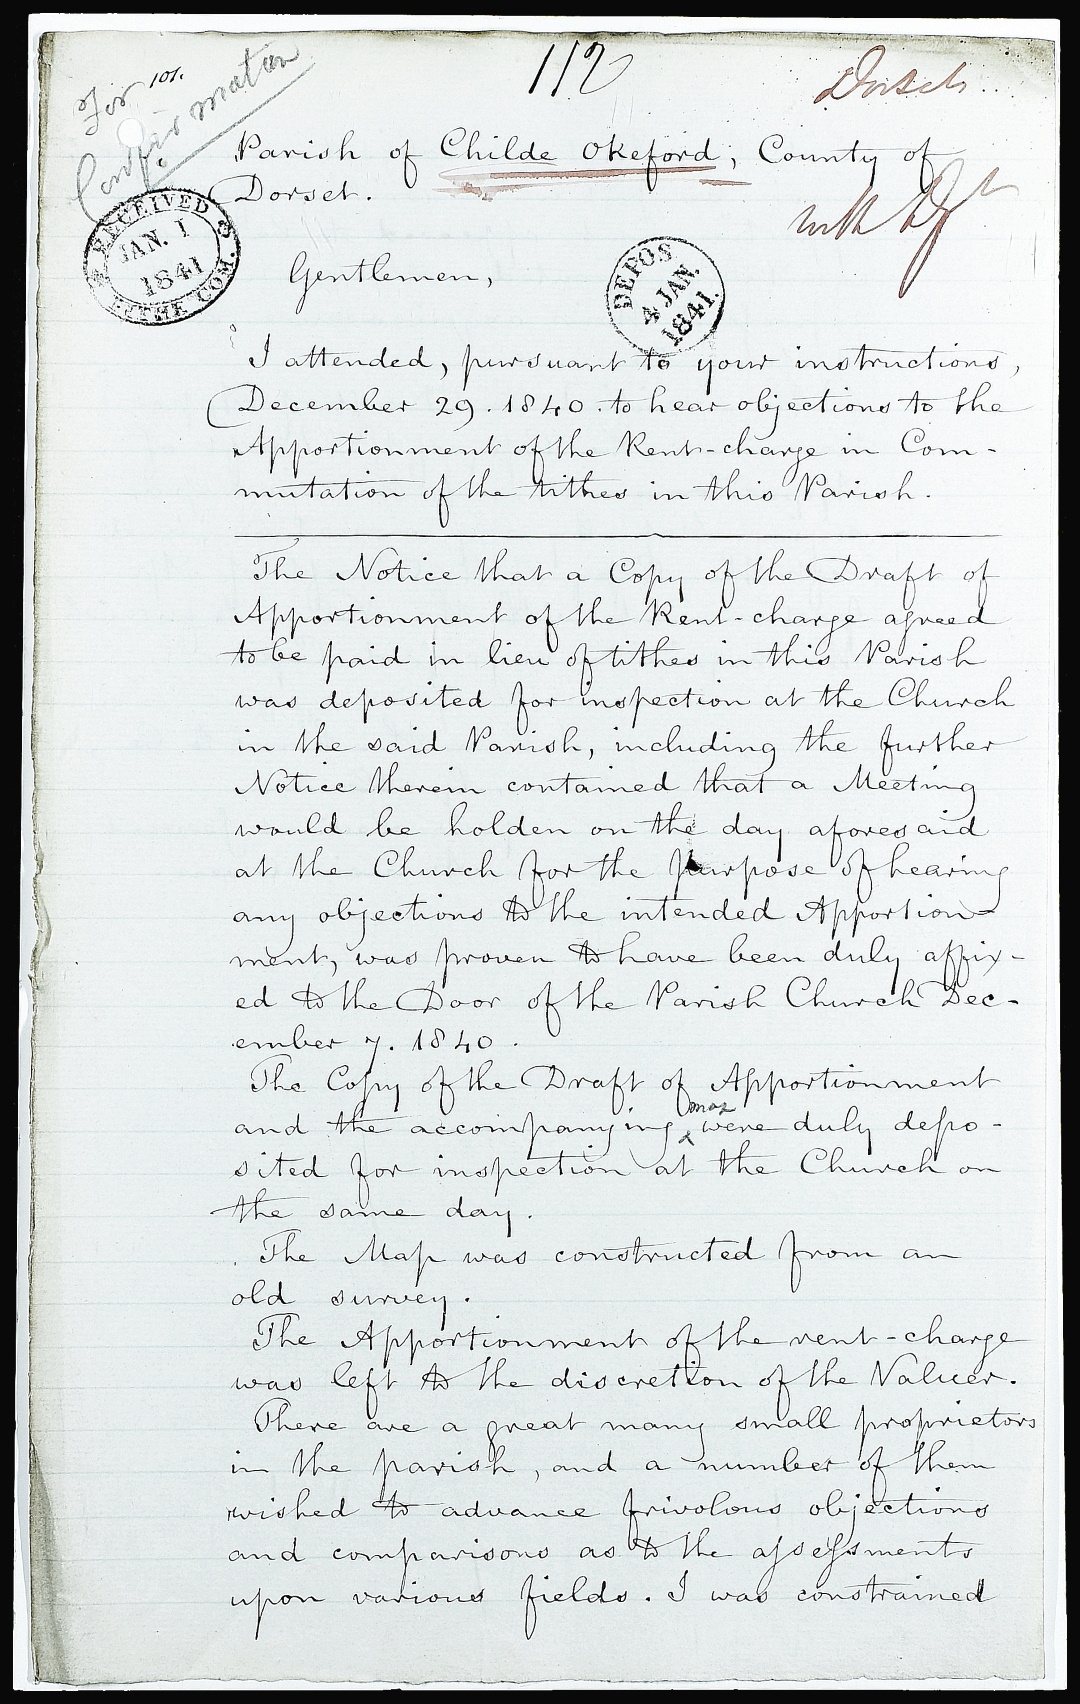 112
Dorset
For 101.
Confirmation
Parish of Childe Okeford, County of
Dorset.
RECEIVED
JAN. 1
1841
TITHE COM.
Gentlemen,
DEPOS
4 JAN.
1841.
I attended, pursuant to your instructions,
December 29. 1840. to hear objections to the
Apportionment of the Rent-charge in Com-
mutation of the tithes in this Parish.
The Notice that a Copy of the Draft of
Apportionment of the Rent-charge agreed
to be paid in lieu of tithes in this Parish
was deposited for inspection at the Church
in the said Parish, including the further
Notice therein contained that a Meeting
would be holden on the day aforesaid
at the Church for the purpose of hearing
any objections to the intended Apportion-
ment, was proven to have been duly affix-
ed to the Door of the Parish Church Dec-
ember 7. 1840.
The Copy of the Draft of Apportionment
and the accompanying map were duly depo-
sited for inspection at the Church on
the same day.
The Map was constructed from an
old survey.
The Apportionment of the rent-charge
was left to the discretion of the Valuer.
There are a great many small proprietors
in the parish, and a number of them
wished to advance frivolous objections
and comparisons as to the assessments
upon various fields. I was constrained